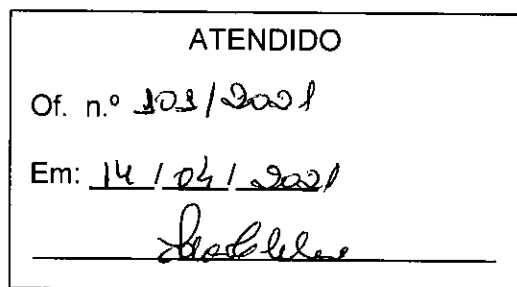 ATENDIDO
Of. n.º 101/2021
Em: 14 / 04 / 2021